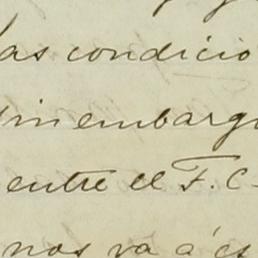 las condicio
Sin embargo
entre el F. C.
nos va á es